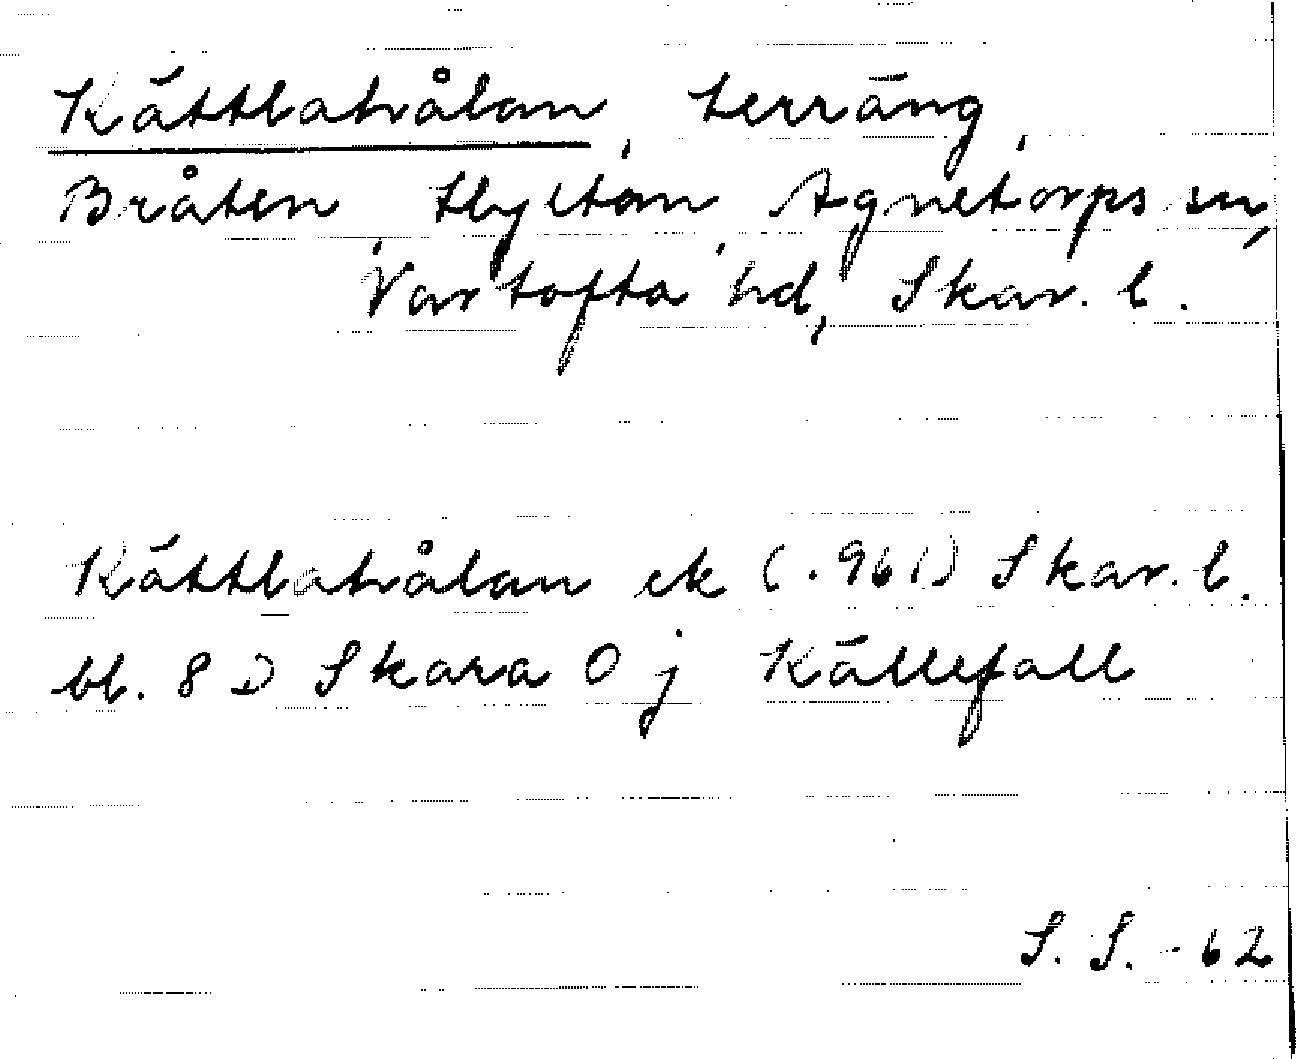 Kättlahålan, terräng,
Bråten, Hyltan, Agnetorps sn,
Vartofta hd, Skar. l.
Kättlahålan ek (.961) Skar. l.
bl. 8 D Skara 0 j Källefall
S. S. -62